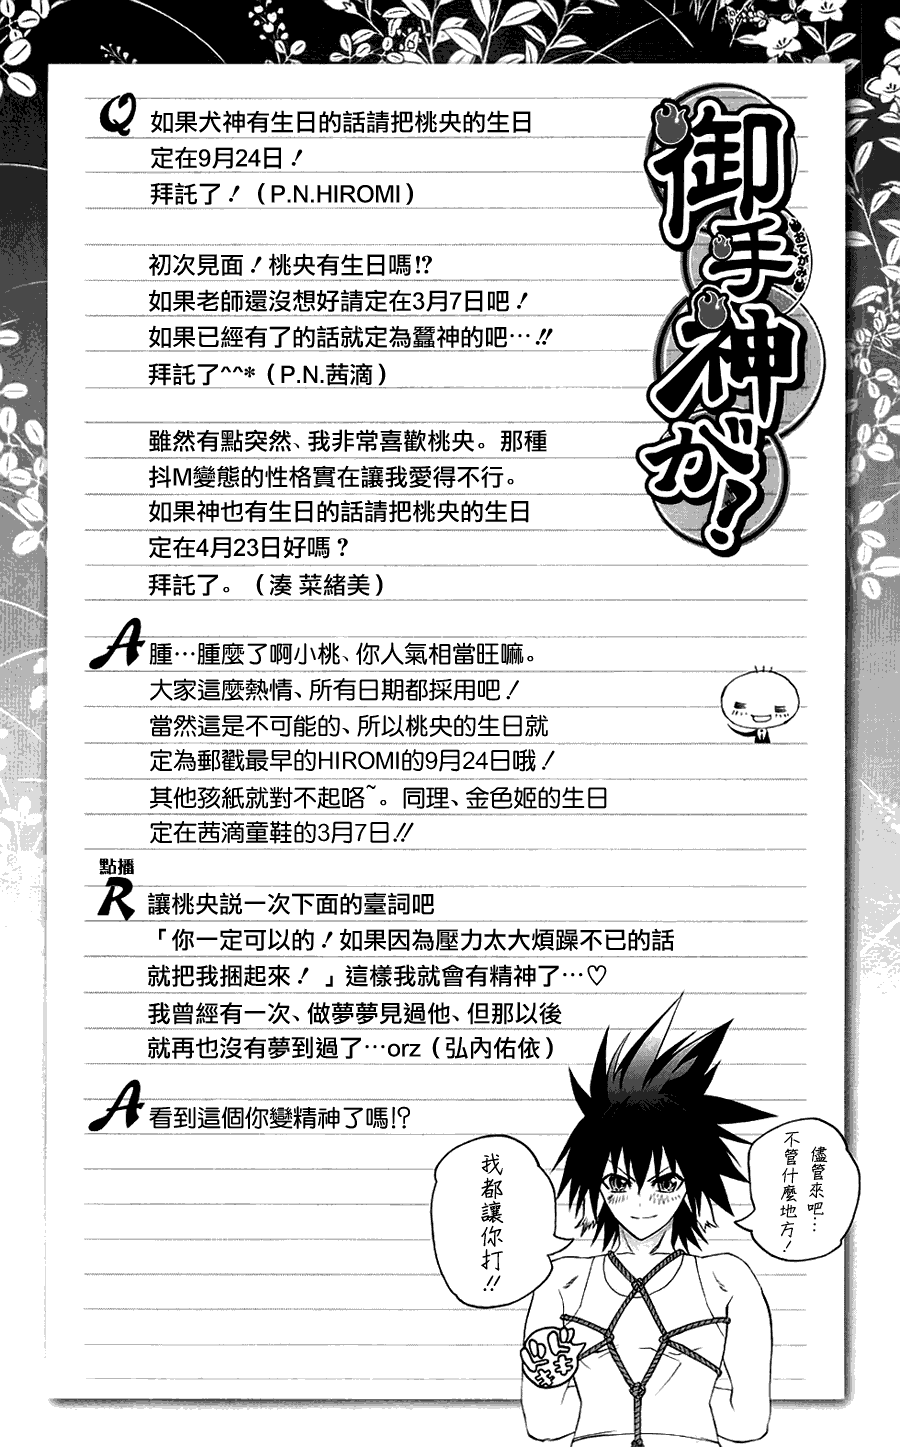 御手神が!
おてがみ
Q 如果犬神有生日的話請把桃央的生日
定在9月24日!
拜託了!(P.N.HIROMI)
初次見面!桃央有生日嗎!?
如果老師還沒想好請定在3月7日吧!
如果已經有了的話就定為蠶神的吧…!!
拜託了^^*(P.N.茜滴)
雖然有點突然、我非常喜歡桃央。那種
抖M變態的性格實在讓我愛得不行。
如果神也有生日的話請把桃央的生日
定在4月23日好嗎?
拜託了。(湊 菜緒美)
A 腫…腫麼了啊小桃、你人氣相當旺嘛。
大家這麼熱情、所有日期都採用吧!
當然這是不可能的、所以桃央的生日就
定為郵戳最早的HIROMI的9月24日哦!
其他孩紙就對不起咯~。同理、金色姬的生日
定在茜滴童鞋的3月7日!!
點播
R 讓桃央説一次下面的臺詞吧
「你一定可以的!如果因為壓力太大煩躁不已的話
就把我捆起來!」這樣我就會有精神了…♡
我曾經有一次、做夢夢見過他、但那以後
就再也沒有夢到過了…orz(弘內佑依)
A 看到這個你變精神了嗎!?
儘管來吧…
不管什麼地方!
我都讓你打!!
ドキドキ